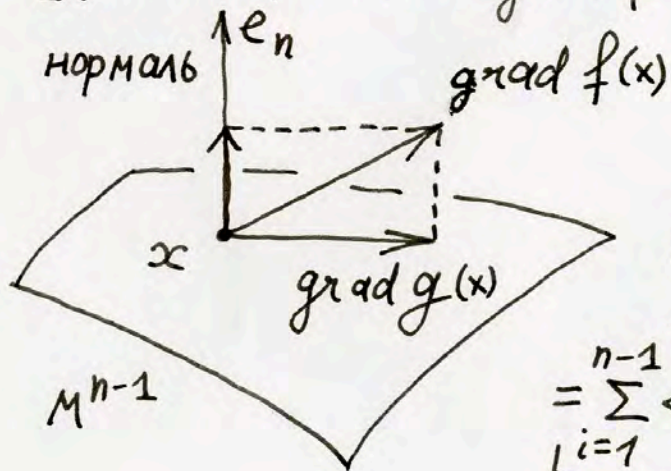 e_n
нормаль
grad f(x)
x
grad g(x)
M^{n-1}
= \sum_{i=1}^{n-1}